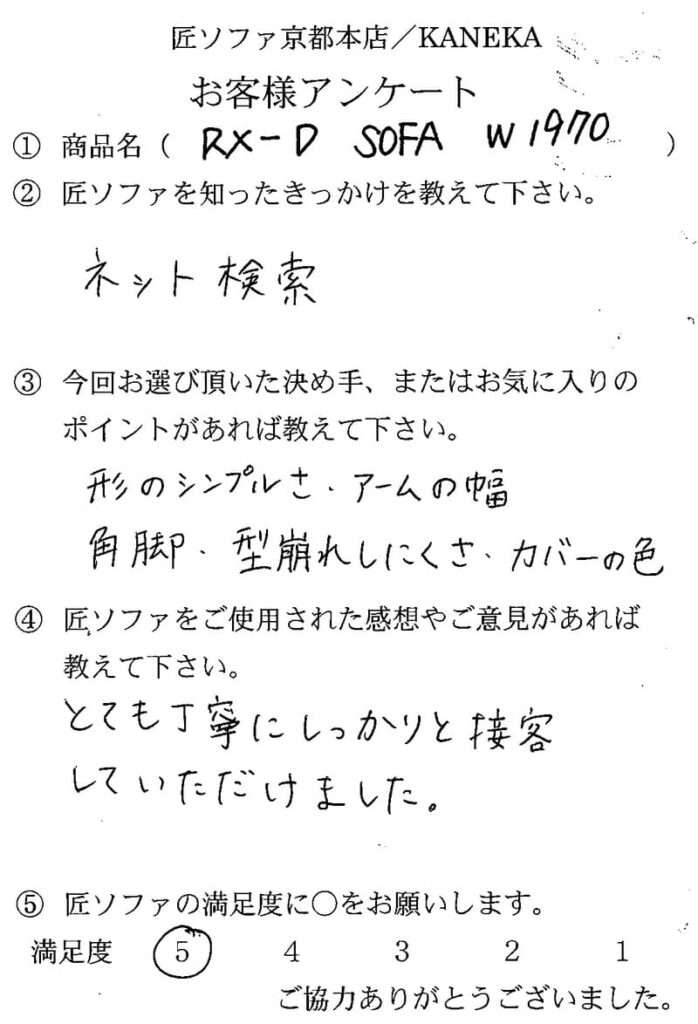 匠ソファ京都本店／KANEKA
お客様アンケート
① 商品名（ RX-D SOFA W1970 ）
② 匠ソファを知ったきっかけを教えて下さい。
ネット検索
③ 今回お選び頂いた決め手、またはお気に入りの
ポイントがあれば教えて下さい。
形のシンプルさ・アームの幅
角脚・型崩れしにくさ・カバーの色
④ 匠ソファをご使用された感想やご意見があれば
教えて下さい。
とても丁寧にしっかりと接客
していただけました。
⑤ 匠ソファの満足度に○をお願いします。
満足度 5 4 3 2 1
ご協力ありがとうございました。